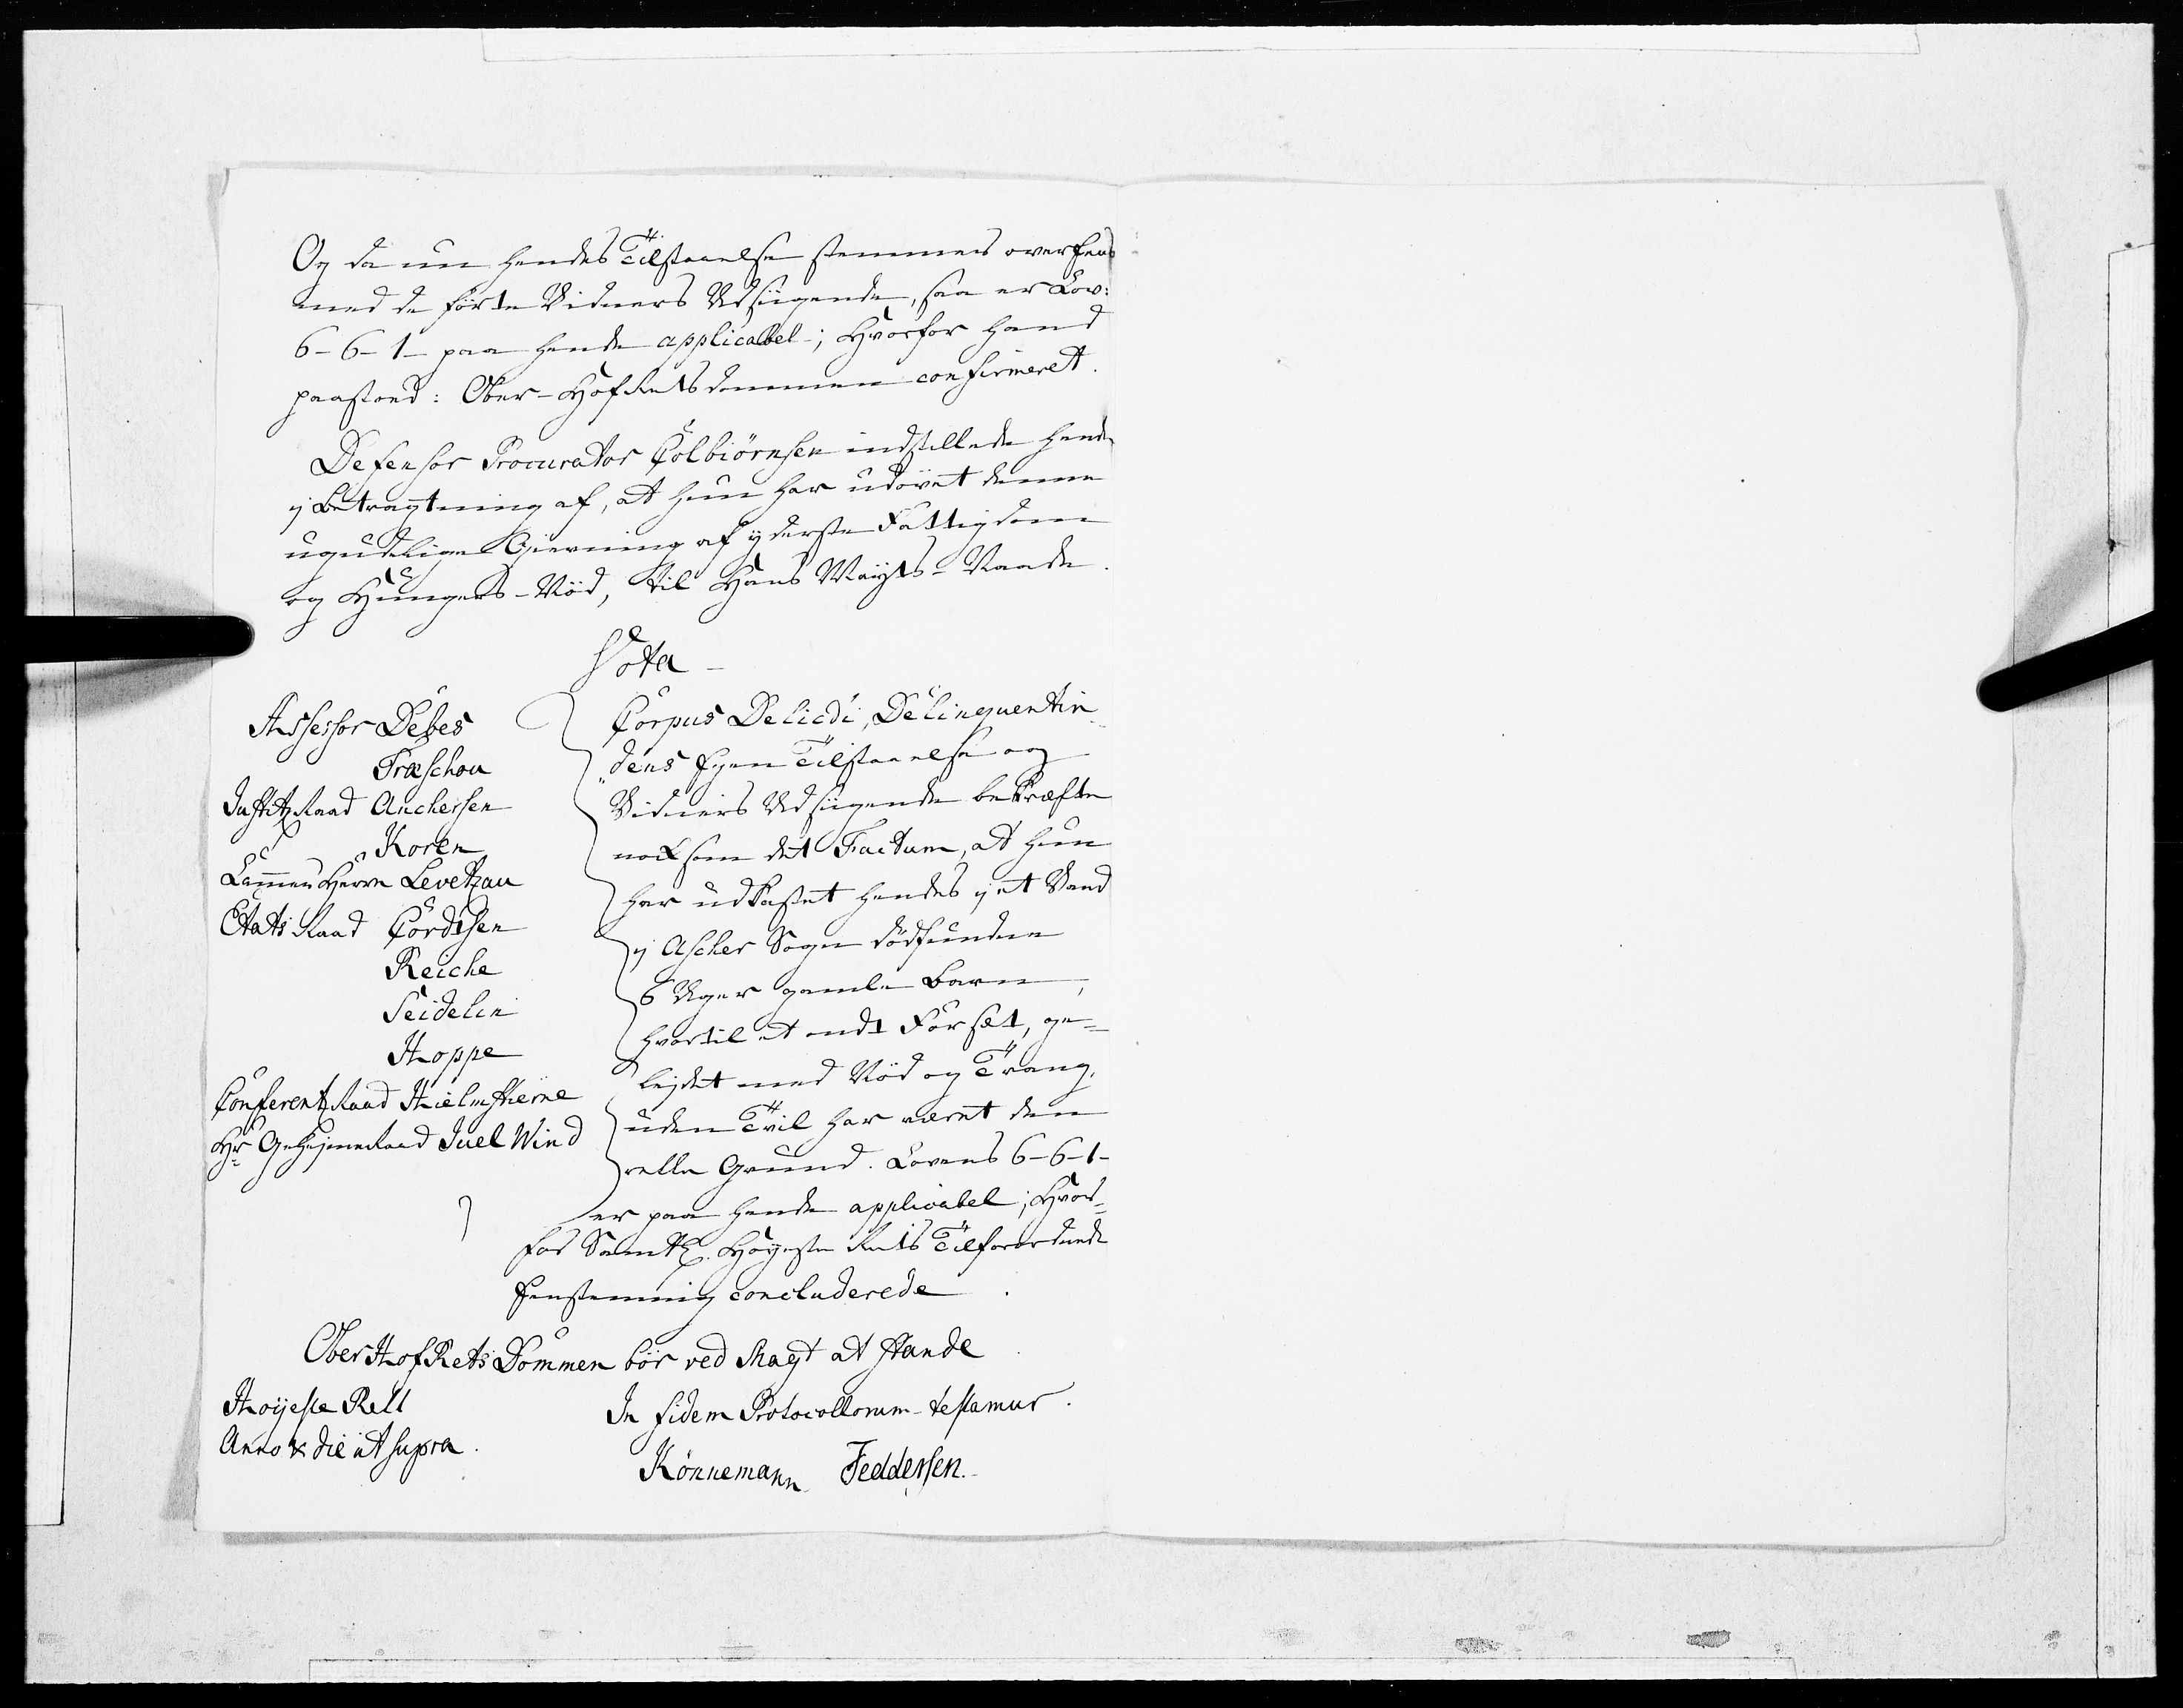 Og da nu hendes Tilstaaelse stemmer overEens
med de förte Vidners Udsiigende, saa er Lov:
6-6-1- paa hende applicabel; Hvorfor hand
paastoed: Ober-HofRetsdommen confirmeret.
Defensor Procurator Colbiörnsen indstillede hende
j Betragtning af, at hun har udövet denne
ugudelige Gierning af yderste Fattigdom
og Hungers-Nöd, til Hans Mayts-Naade.
Vota
Assessor Debes
Træschou
JustitzRaad Anchersen
Koren
CammerHerre Levetzau
EtatsRaad Cordtsen
Reiche
Seidelin
Hoppe
ConferentzRaad Hielmstierne
Hr GeheimeRaad Juel Wind
Corpus Delicti, Delinquentin-
dens Egen Tilstaaelse og
Vidners Udsiigende bekræfte
noksom det Factum, at hun
har udkastet hendes j et Vand
j Ascher Sogn dödfundne
6 Uger gamle Barn,
hvortil et ondt Forsæt, ge-
lejdet med Nöd og Trang,
uden Tvil har været den
rette Grund. Lovens 6-6-1-
er paa hende applicabel; Hvor-
for Samtl. Höyeste Rets Tilforordnede
Eenstemmig concluderede
Ober HofRets Dommen bör ved Magt at stande
Höyeste Rett
Anno & die ut supra.
In fidem Protocollorum testamur.
Könnemann Feddersen.